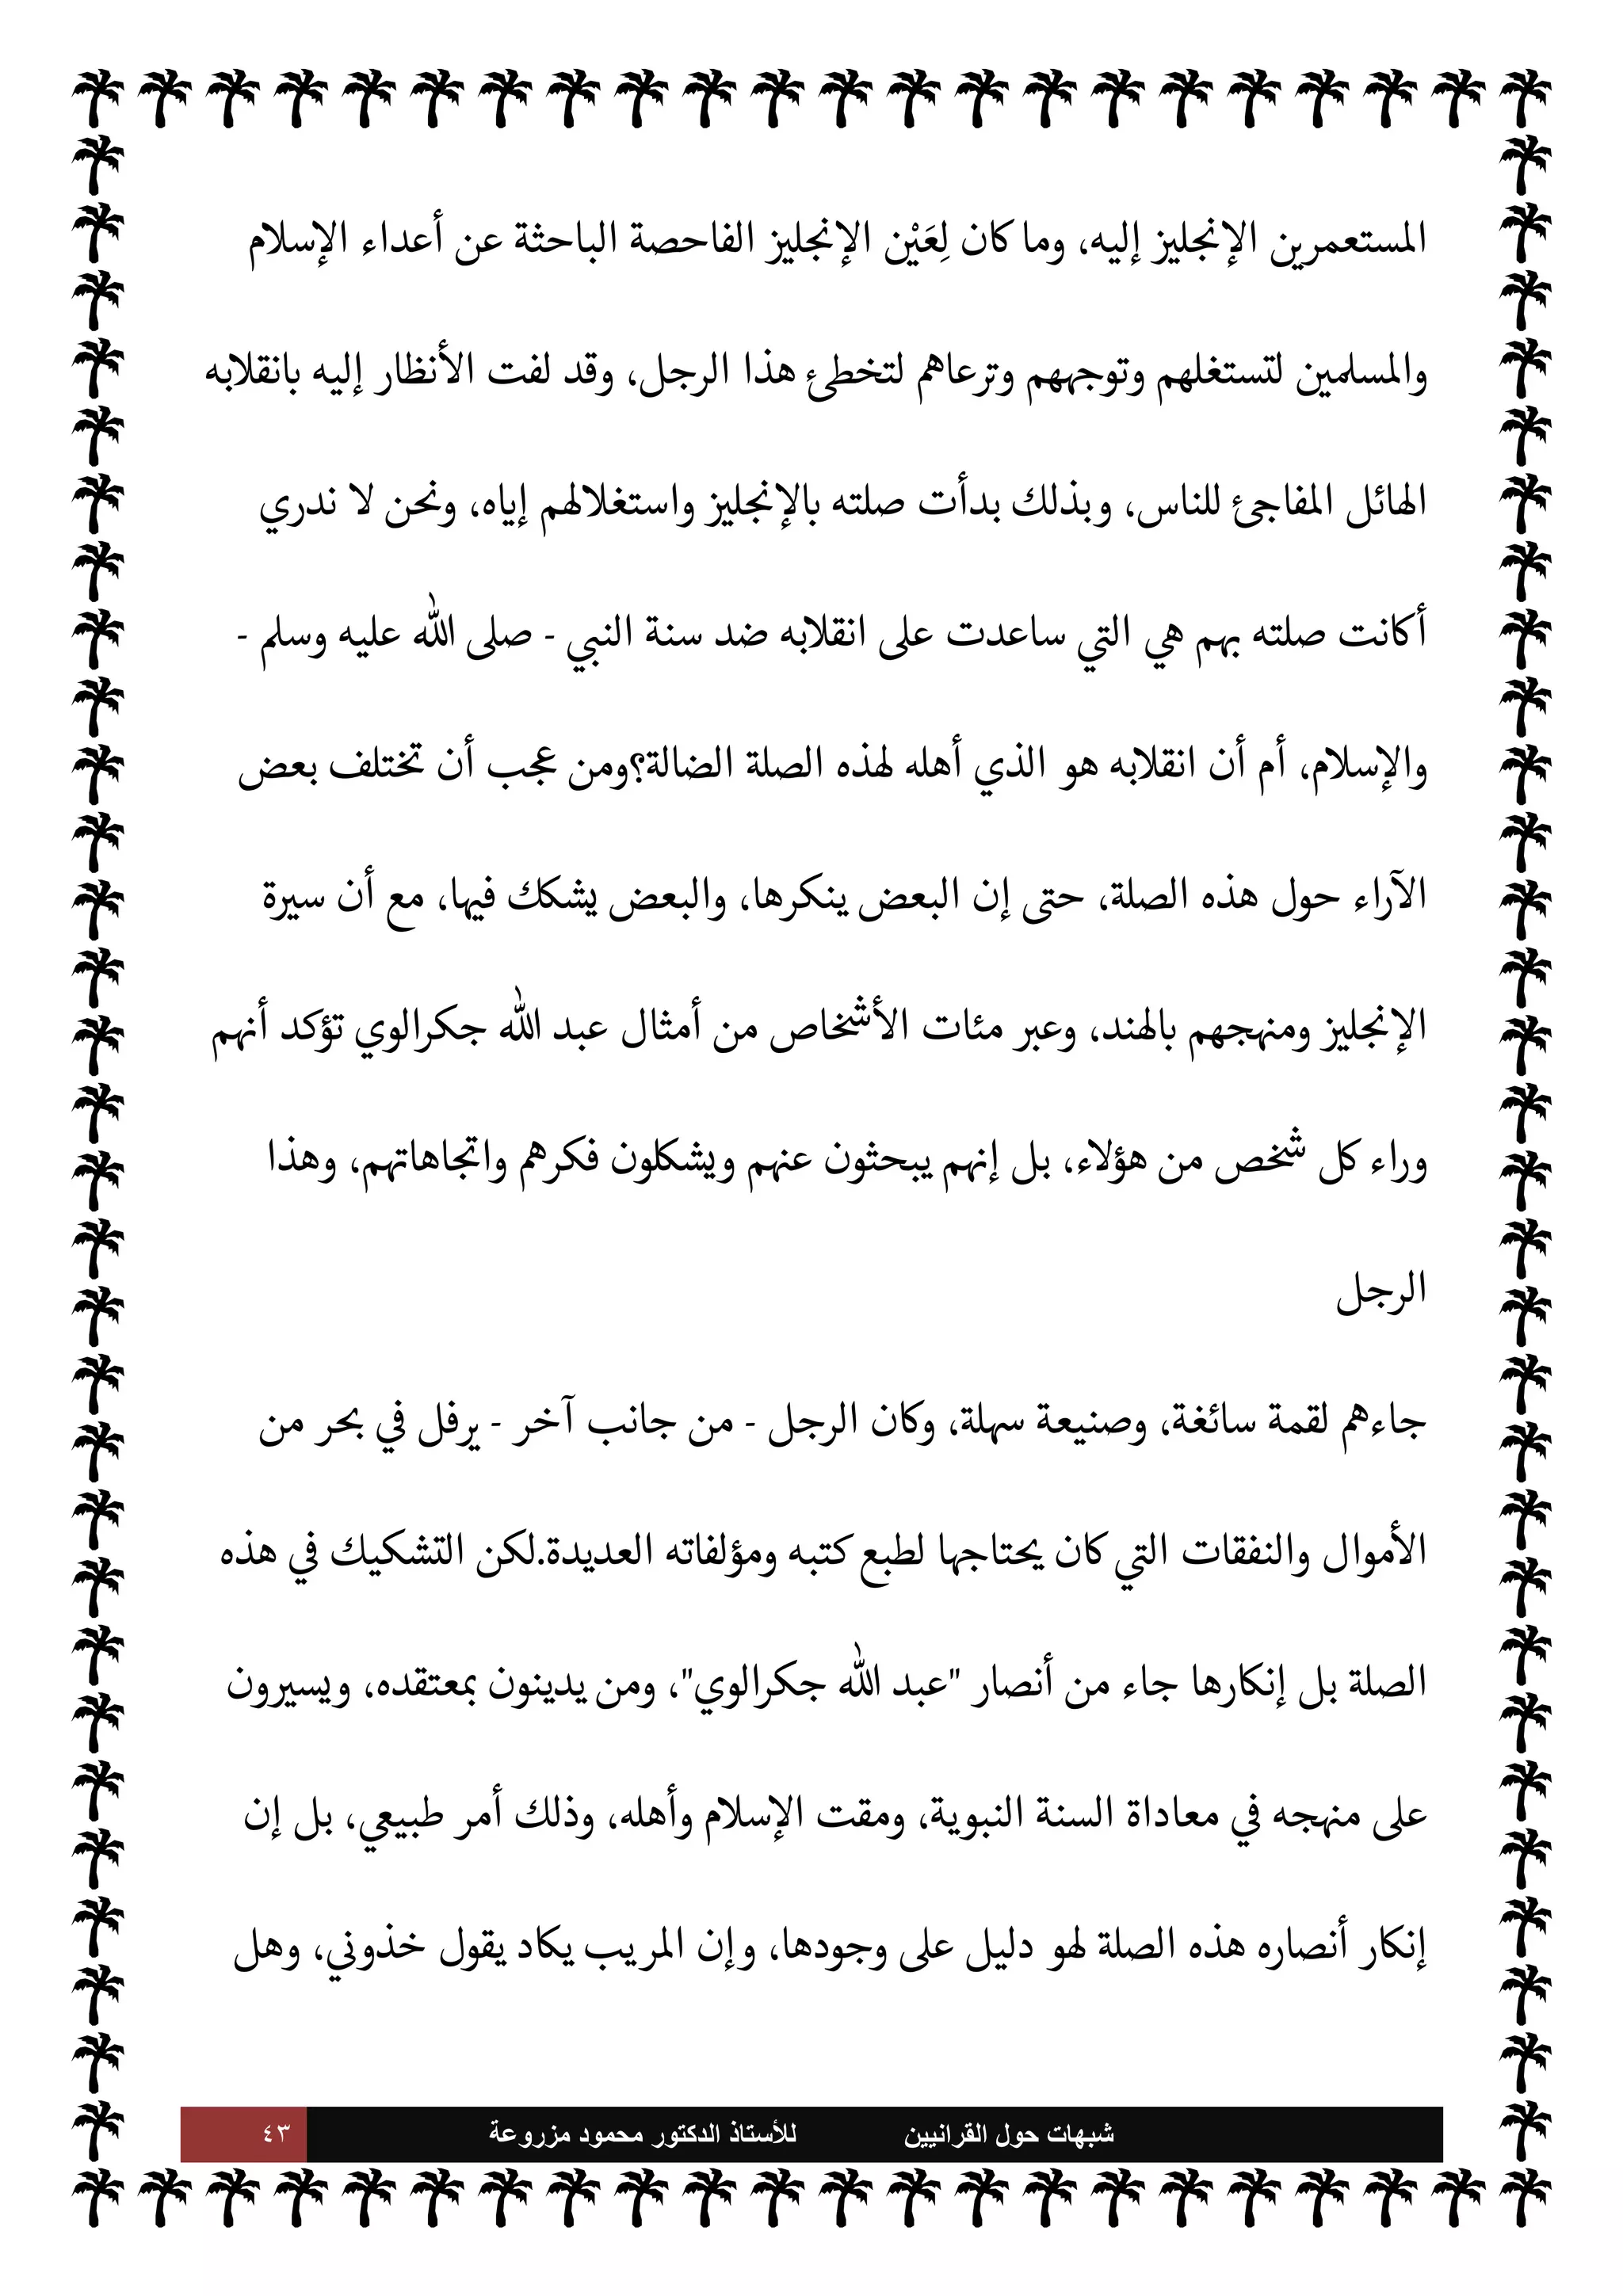 المستعمرين الإنجليز إليه، وما كان لِعَيْن الإنجليز الفاحصة الباحثة عن أعداء الإسلام
والمسلمين لتستغلهم وتوجههم وترعاهم لتخطئ هذا الرجل، وقد لفت الأنظار إليه بانقلابه
الهائل المفاجئ للناس، وبذلك بدأت صلته بالإنجليز واستغلالهم إياه، ونحن لا ندري
أكانت صلته بهم هي التي ساعدت على انقلابه ضد سنة النبي - صلى الله عليه وسلم -
والإسلام، أم أن انقلابه هو الذي أهله لهذه الصلة الضالة؟ومن عجب أن تختلف بعض
الآراء حول هذه الصلة، حتى إن البعض ينكرها، والبعض يشكك فيها، مع أن سيرة
الإنجليز ومنهجهم بالهند، وعبر مئات الأشخاص من أمثال عبد الله جكرالوي تؤكد أنهم
وراء كل شخص من هؤلاء، بل إنهم يبحثون عنهم ويشكلون فكرهم واتجاهاتهم، وهذا
الرجل
جاءهم لقمة سائغة، وصنيعة سهلة، وكان الرجل - من جانب آخر - يرفل في بحر من
الأموال والنفقات التي كان يحتاجها لطبع كتبه ومؤلفاته العديدة.لكن التشكيك في هذه
الصلة بل إنكارها جاء من أنصار "عبد الله جكرالوي"، ومن يدينون بمعتقده، ويسيرون
على منهجه في معاداة السنة النبوية، ومقت الإسلام وأهله، وذلك أمر طبيعي، بل إن
إنكار أنصاره هذه الصلة لهو دليل على وجودها، وإن المريب يكاد يقول خذوني، وهل
شبهات حول القرانيين للأستاذ الدكتور محمود مزروعة ٤٣